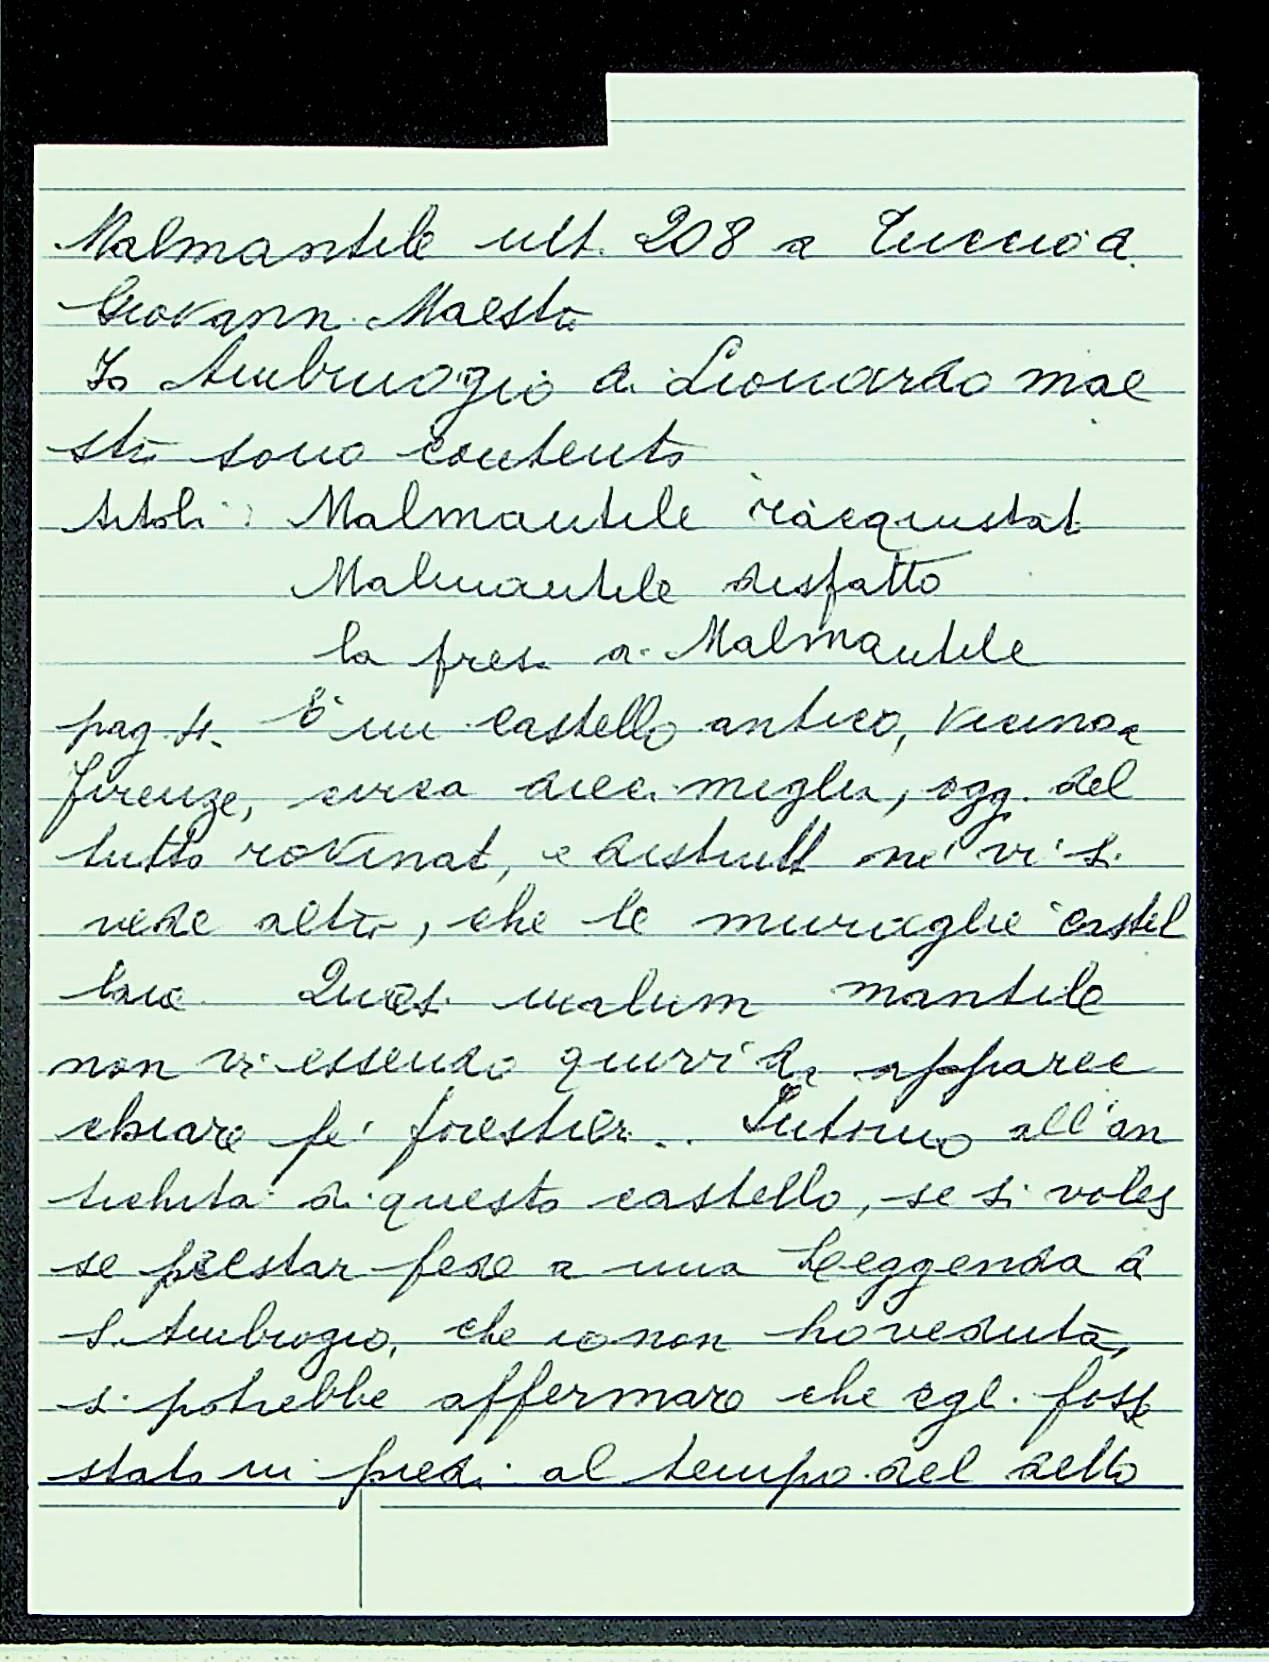 Malmantile ult. 208 a Tuccio di
Giovann. Maestr
Io Ambruogio di Lionardo mae
str sono contento
titoli: Malmantile racquistat
Malmantile disfatto
la presa di Malmantile
pag. 4. È un castello antico, vicino a
Firenze, circa dieci miglia, oggi del
tutto rovinat, e distrutt né vi si
vede altro, che le muraglie castel
lane. Quasi malum mantile
non vi essendo quivi da apparec
chiare pe' forestieri.. Intorno all'an
tichità di questo castello, se si voles
se prestar fede a una Leggenda di
S. Ambrogio, che io non ho veduta,
si potrebbe affermare che egli fosse
stato in piedi al tempo del detto